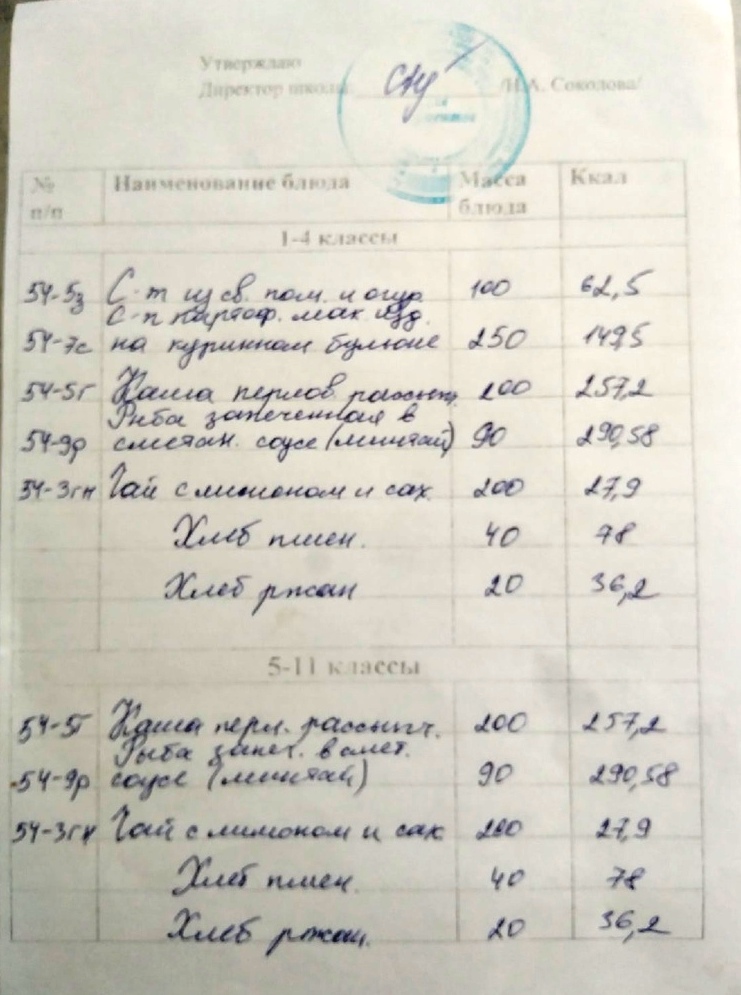 Утверждаю
Директор школы /И.А. Соколова/
№ п/п Наименование блюда Масса блюда Ккал
1-4 классы
54-5з С-т из св. пом. и огур. 100 62,5
С-п картоф. мак. изд.
54-7с на курином бульоне 250 149,5
54-5г Каша перлов. рассыпч. 200 257,2
Рыба запеченная в
54-9р сметан. соусе (минтай) 90 290,58
54-3гн Чай с лимоном и сах. 200 27,9
Хлеб пшен. 40 78
Хлеб ржан 20 36,2
5-11 классы
54-5г Каша перл. рассыпч. 200 257,2
Рыба запеч. в смет.
54-9р соусе (минтай) 90 290,58
54-3гн Чай с лимоном и сах 200 27,9
Хлеб пшен. 40 78
Хлеб ржан. 20 36,2